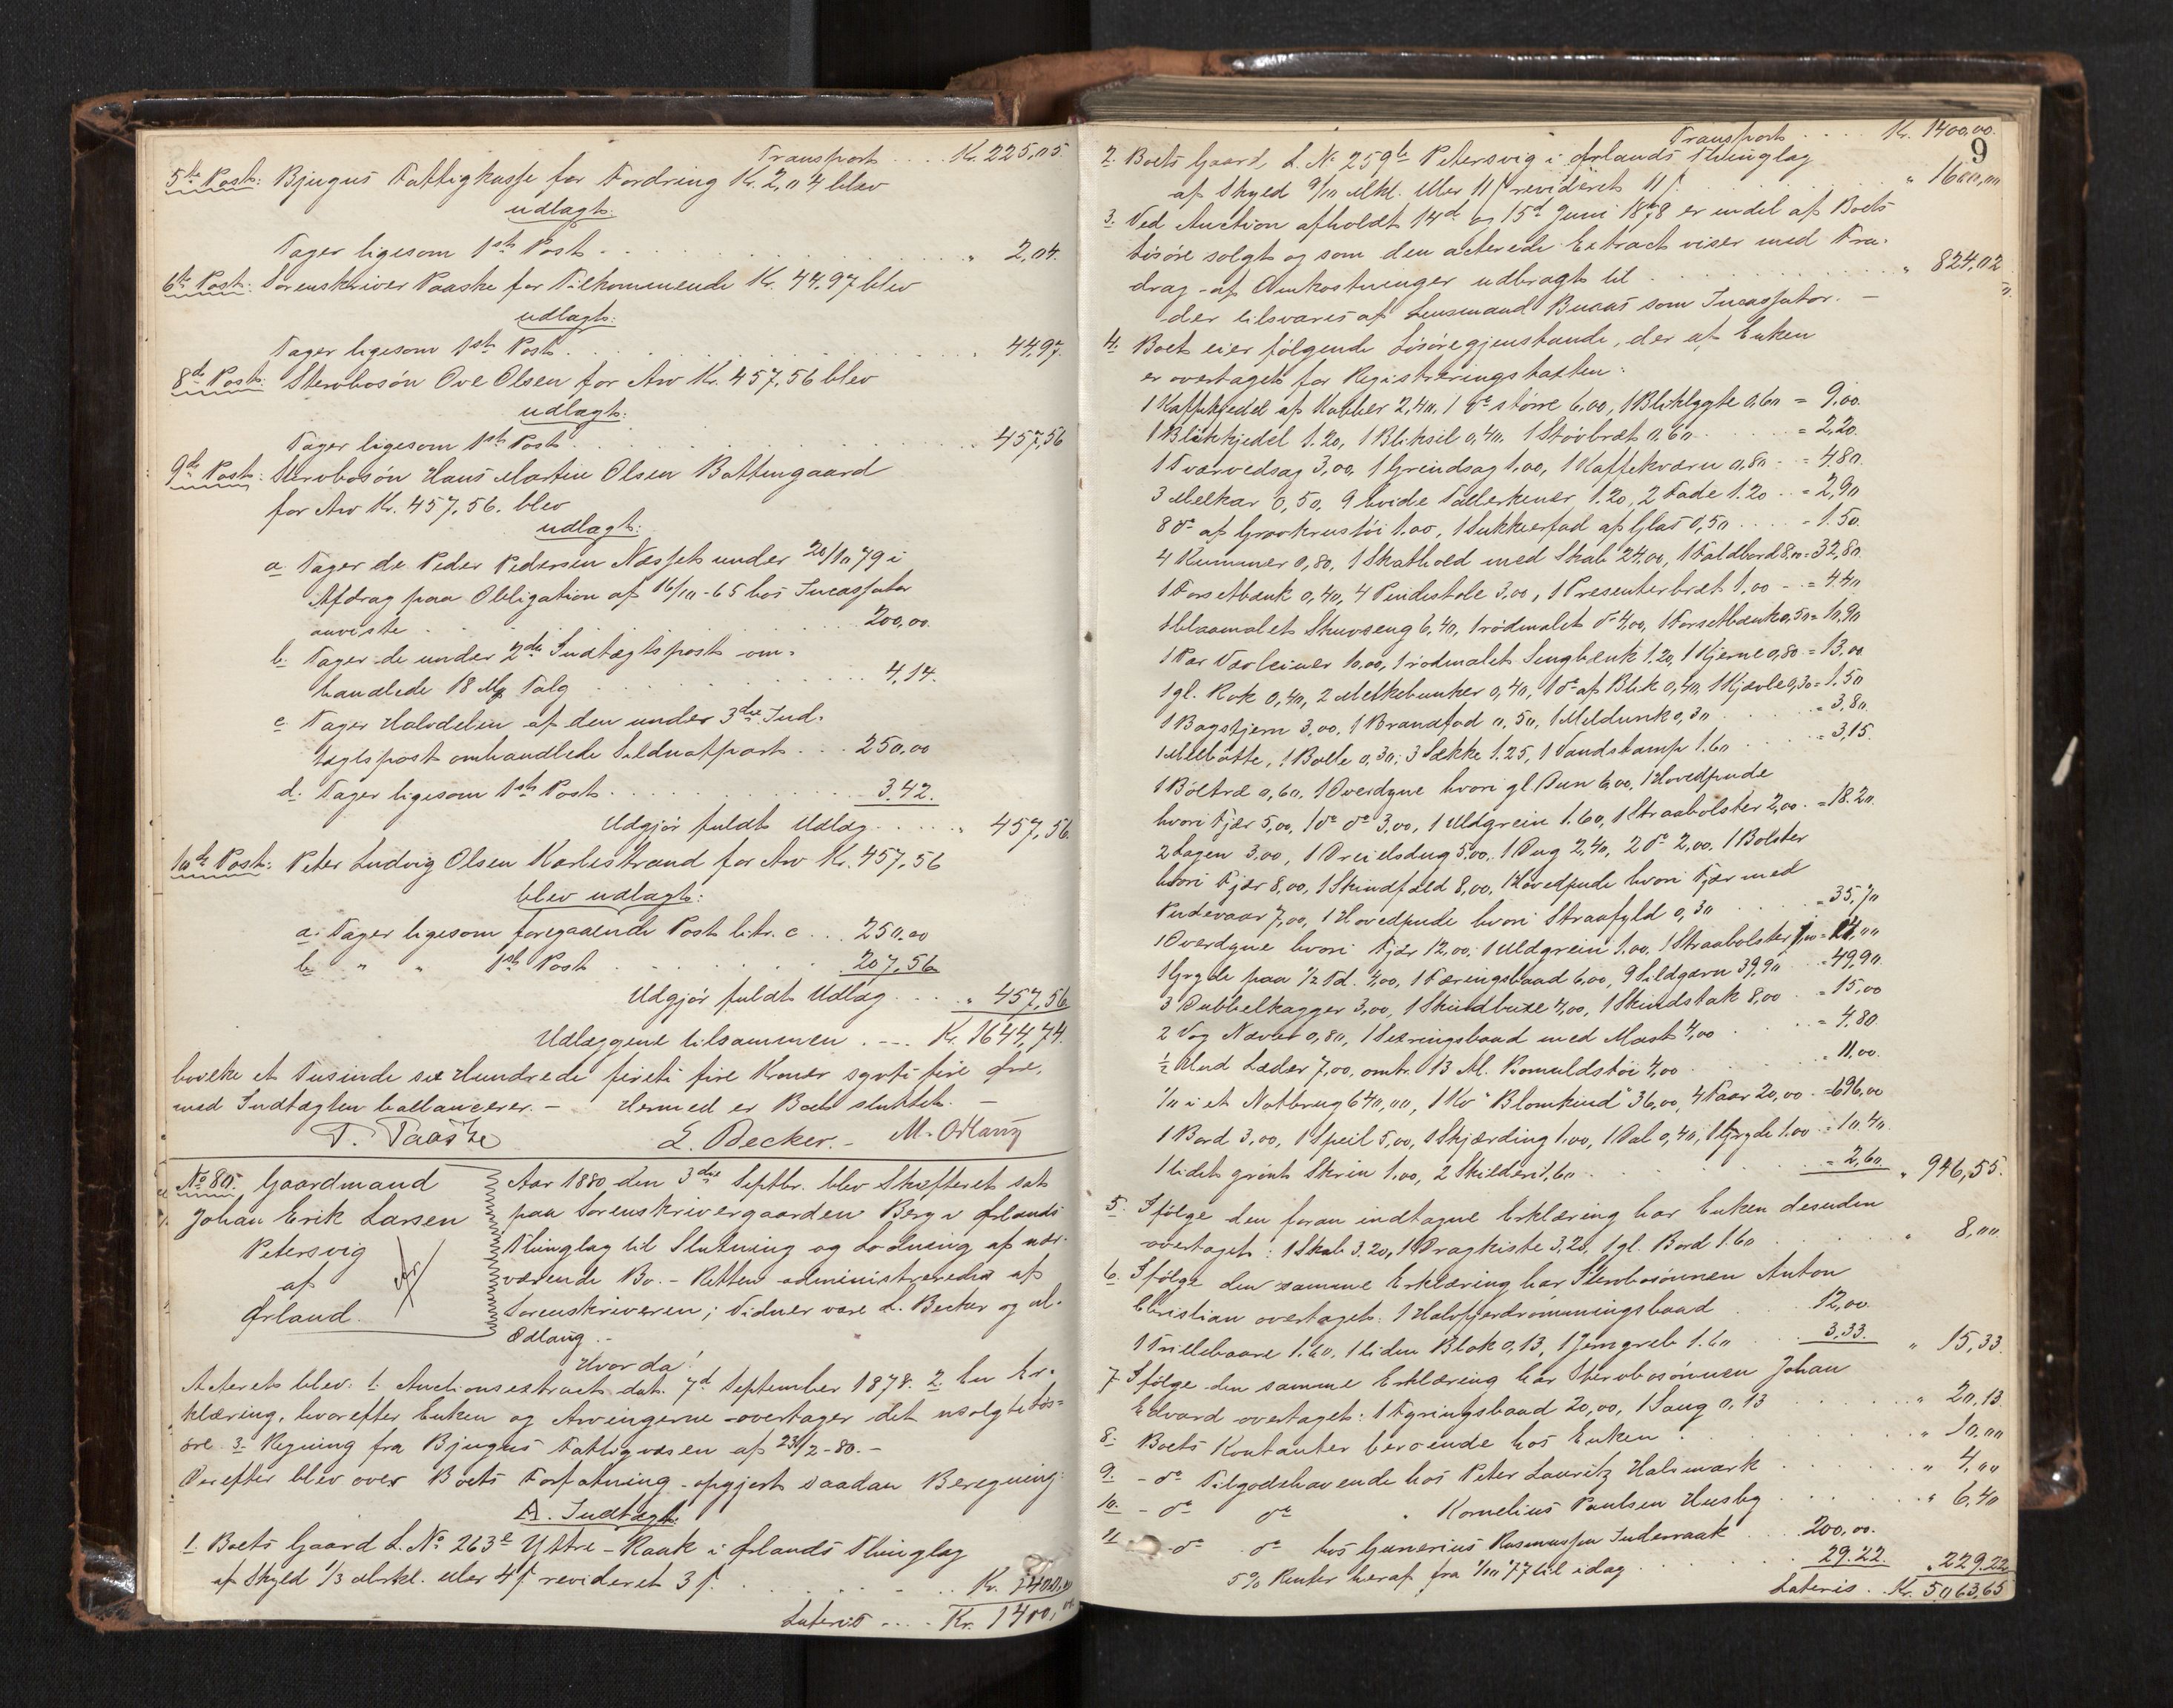 Transport .... Kr. 225,05.
5te Post: Bjugns Fattigkasse for Fordring Kr. 2,04 blev
udlagt:
Tager ligesom 1ste Post . . . " 2,04.
6te Post: Sorenskriver Paaske for Tilkommende Kr. 44,97 blev
udlagt:
Tager ligesom 1ste Post . . . " 44,97.
8de Post: Stervbosøn Ove Olsen for Arv Kr. 457,56 blev
udlagt:
Tager ligesom 1ste Post . . . 457,56
9de Post: Stervbosøn Hans Martin Olsen Battengaard
for Arv Kr. 457,56. blev
udlagt:
a Tager de Peder Pedersen Næsset under 20/10 79 i
Afdrag paa Obligation af 16/10-65 hos Incassator
anviste . . . 200,00.
b. Tager de under 2den Indtægtspost om-
handlede 18 Mg Talg . . . 4,14.
c Tager Halvdelen af den under 3die Ind-
tægtspost omhandlede Sildnotpart . . . 250,00
d. Tager ligesom 1ste Post . . . 3.42.
Udgjør fuldt Udlæg . . . " 457,56.
10de Post: Peter Ludvig Olsen Karlestrand for Arv Kr. 457,56
blev udlagt:
a. Tager ligesom foregaaende Post litr. c . . . 250.00
b. " " 1ste Post . . . 207,56
Udgjør fuldt Udlæg . . . " 457,56
Udlæggene tilsammen . . . Kr. 1644,74.
hvilke et Tusinde sex Hundrede fireti fire Kroner sytti fire Øre,
med Indtægten ballancerer. - Hermed er Boet sluttet. -
T. Paaske L. Becker. - M. Ødlang
No 80. Gaardmand
Johan Erik Larsen
Petersvig
af
Ørland.
Aar 1880 den 3die Septbr. blev Skifteret sat
paa Sorenskrivergaarden Berg i Ørlands
Thinglag til Slutning og Lodning af nær-
værende Bo. - Retten administreredes af
Sorenskriveren; Vidner vare L. Becker og M.
Ødlang. -
Hvorda!
Acteret blev: 1. Auctionsextract dat. 7d September 1878. 2. En Er-
klæring, hvorefter Enken og Arvingerne overtager det usolgte Løs-
øre 3. Regning fra Bjugns Fattigvæsen af 23/2-80. -
Derefter blev over Boets Forfatning opgjort saadan Beregning:
A. Indtægt:
1. Boets Gaard L. No 263e Yttre-Raak i Ørlands Thinglag
af Skyld 1/3 Mrkl. eller 4 ſ revideret 3 ſ. . . . Kr. 1400,00
Lateris .... Kr. 1400,00.
9
Transport .... Kr. 1400,00.
2. Boets Gaard L. No 259b Petersvig i Ørlands Thinglag
af Skyld 9/10 Mkl. eller 11 ſ revideret 11 ſ. . . . " 1600,00
3. Ved Auction afholdt 14d og 15d Juni 1878 er endel af Boets
Løsøre solgt og som den acterede Extract viser med Fra-
drag af Omkostninger udbragt til . . . " 824,02
der tilsvares af Lensmand Bucas som Incassator. -
4. Boet eier følgende Løsøregjenstande, der af Enken
er overtaget for Registreringstaxten:
1 Kaffekjedel af Kobber 2,40, 1 do større 6,00, 1 Bliklygte 0,60 = 9,00.
1 Blikkjedel 1.20, 1 Bliksil 0,40, 1 Støvbræt 0,60 . . . = 2,20.
1 Tværvedsag 3,00, 1 Grindsag 1,00, 1 Kaffekværn 0,80 . = 4,80.
3 Melkar 0,50, 9 hvide Tallerkener 1.20, 2 Fade 1.20 . . = 2,90
8 do af Graakrustøi 1.00, 1 Sukkerfad af Glas 0,50 . . . = 1.50.
4 Kummer 0,80, 1 Skathoed med Skab 24,00, 1 Faldbord 8,00 = 32,80.
1 Forsetbænk 0,40, 4 Pindestole 3,00, 1 Presenterbræt 1,00 - . = 4.40
1 blaamalet Skuvseng 6,40, 1 rødmalet do 4,00, 1 Forsetbænk 0,50 = 10,90
1 Par Vævleiner 10,00, 1 rødmalet Sengbænk 1.20, 1 Kjerne 0,80 = 13,00
1 gl. Rok 0,40, 2 Melkebunker 0,40, 1 do af Blik 0,40, 1 Kjævle 0,30 = 1.50
1 Bagstjern 3,00, 1 Brandfod 0,50, 1 Meldunk 0,30 . . . = 3,80.
1 Melbøtte, 1 Bolle 0,30, 3 Sække 1.25, 1 Vandstamp 1.60 . . . = 3,15.
1 Bøltræ 0,60, 1 Overdyne hvori gl. Dun 6,00, 1 Hovedpude
hvori Fjær 5,00, 1 do do 3,00, 1 Uldgrein 1.60, 1 Straabolster 2,00. = 18.20.
2 Lagen 3,00, 1 Dreielsdug 5,00, 1 Dug 2,40, 2 do 2,00, 1 Bolster
hvori Fjær 8,00, 1 Skindfæld 8,00, 1 Hovedpude hvori Fjær med
Pudevaar 7,00, 1 Hovedpude hvori Straafyld 0,30 . . . = 35,70
1 Overdyne hvori Fjær 12,00, 1 Uldgrein 1.00, 1 Straabolster 1,00 = 14,00
1 Gryde paa 1/2 Td. 4,00, 1 Færingsbaad 6,00, 9 Sildgarn 39,90 = 49,90.
3 Dubbelkagger 3,00, 1 Skindbuxe 4,00, 1 Skindstak 8,00 . = 15,00
2 Vog Næver 0,80, 1 Sexringsbaad med Mast 4,00 . . . = 4,80.
1/2 Hud Læder 7,00, omtr. 13 Al. Bomuldstøi 4,00 . . . = 11,00.
1/10 i et Notbrug 640,00, 1 Ko "Blomkind" 36,00, 4 Faar 20,00 . = 696,00
1 Bord 3,00, 1 Speil 5,00, 1 Skjærding 1.00, 1 Bal 0,40, 1 Gryde 1.00 = 10.40.
1 lidet grønt Skrin 1.00, 2 Skilderi 1,60 . . . = 2,60. " 946,55.
5. Ifølge den foran indtagne Erklæring har Enken desuden
overtaget: 1 Skab 3.20, 1 Dragkiste 3,20, 1 gl. Bord 1.60 . . . " 8,00
6. Ifølge den samme Erklæring har Stervbosønnen Anton
Christian overtaget: 1 Halvfjerdrømmingsbaad . . . 12,00.
1 Trillebaare 1.60, 1 liden Blok 0,13, 1 Jerngreb 1.60 . . . 3,33. " 15,33.
7. Ifølge den samme Erklæring har Stervbosønnen Johan
Edvard overtaget: 1 Fyringsbaad 20,00, 1 Saug 0,13 . . . " 20,13.
8. Boets Kontanter beroende hos Enken . . . " 10,00
9. - do Tilgodehavende hos Peter Lauritz Halsmark . . . " 4,00
10. - do do " Kornelius Paulsen Husby . . . " 6,40
11. - do do hos Gunerius Rasmussen Inderraak . . . 200,00.
5% Renter heraf fra 1/10 77 til idag . . . 29.22. " 229.22
Lateris . Kr. 5063,65